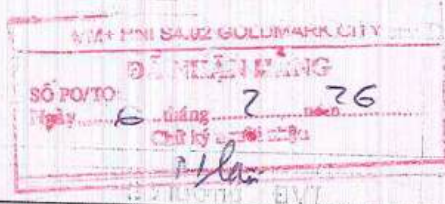 VM+ HNI SA.02 GOLDMARK CITY
ĐÃ NHẬN HÀNG
SỐ PO/TO:
Ngày 6 tháng 2 năm 26
Chữ ký người nhận